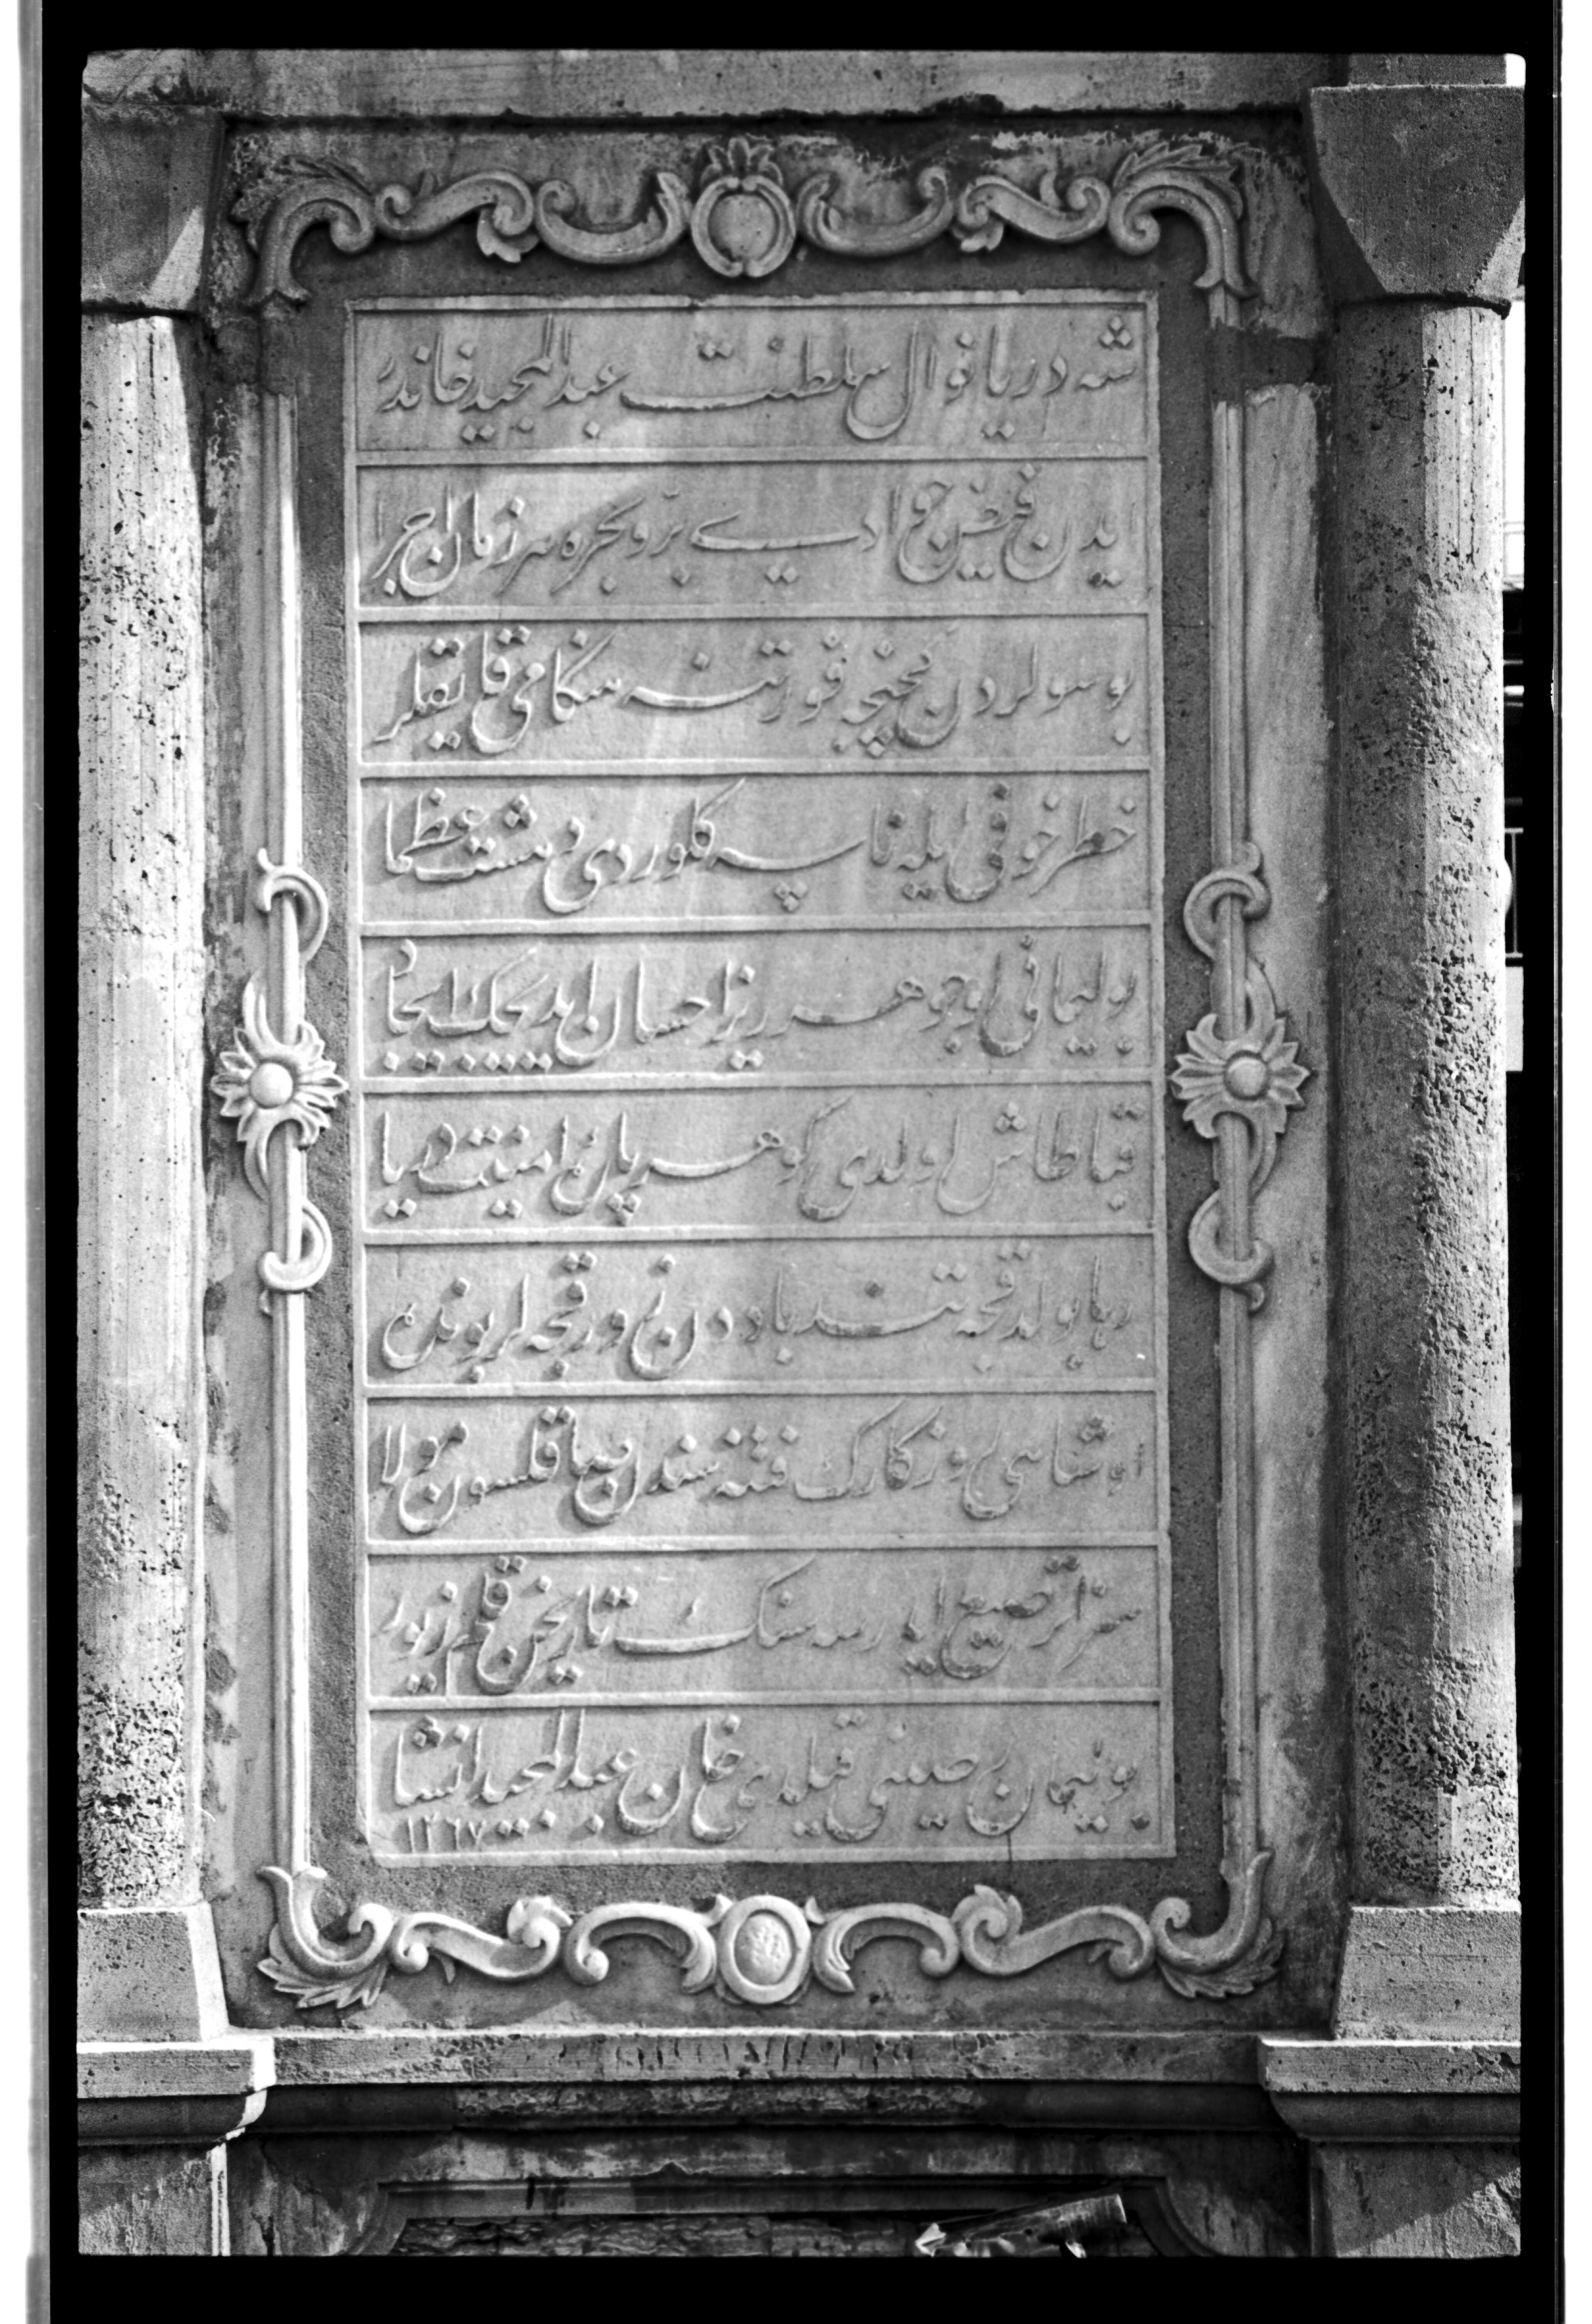 شه دریا نوال سلطنت عبدالمجید خاندر
ایدن فیض جوادیسی بر و بحره هر زمان اجرا
بو سولردن نیچه فورتنه هنكامی قایقلر
خطر خوفی ایله ناپه كلوردی دهشت عظما
بو لیمانی او جوهر ریز احسان ایدیجك ایجاد
قباطاش اولدی كوهرپاش امنیت دریا
رها بولدقجه تندباددن زورقجه لر بونده
شناسی روزكارك فتنه سندن قلسون مولا
سزا ترصیع ایدرسه سنك تاریخن قلم زیور
بو لیمان رصینی قیلدی خان عبدالمجید انشا
١٢٦٧